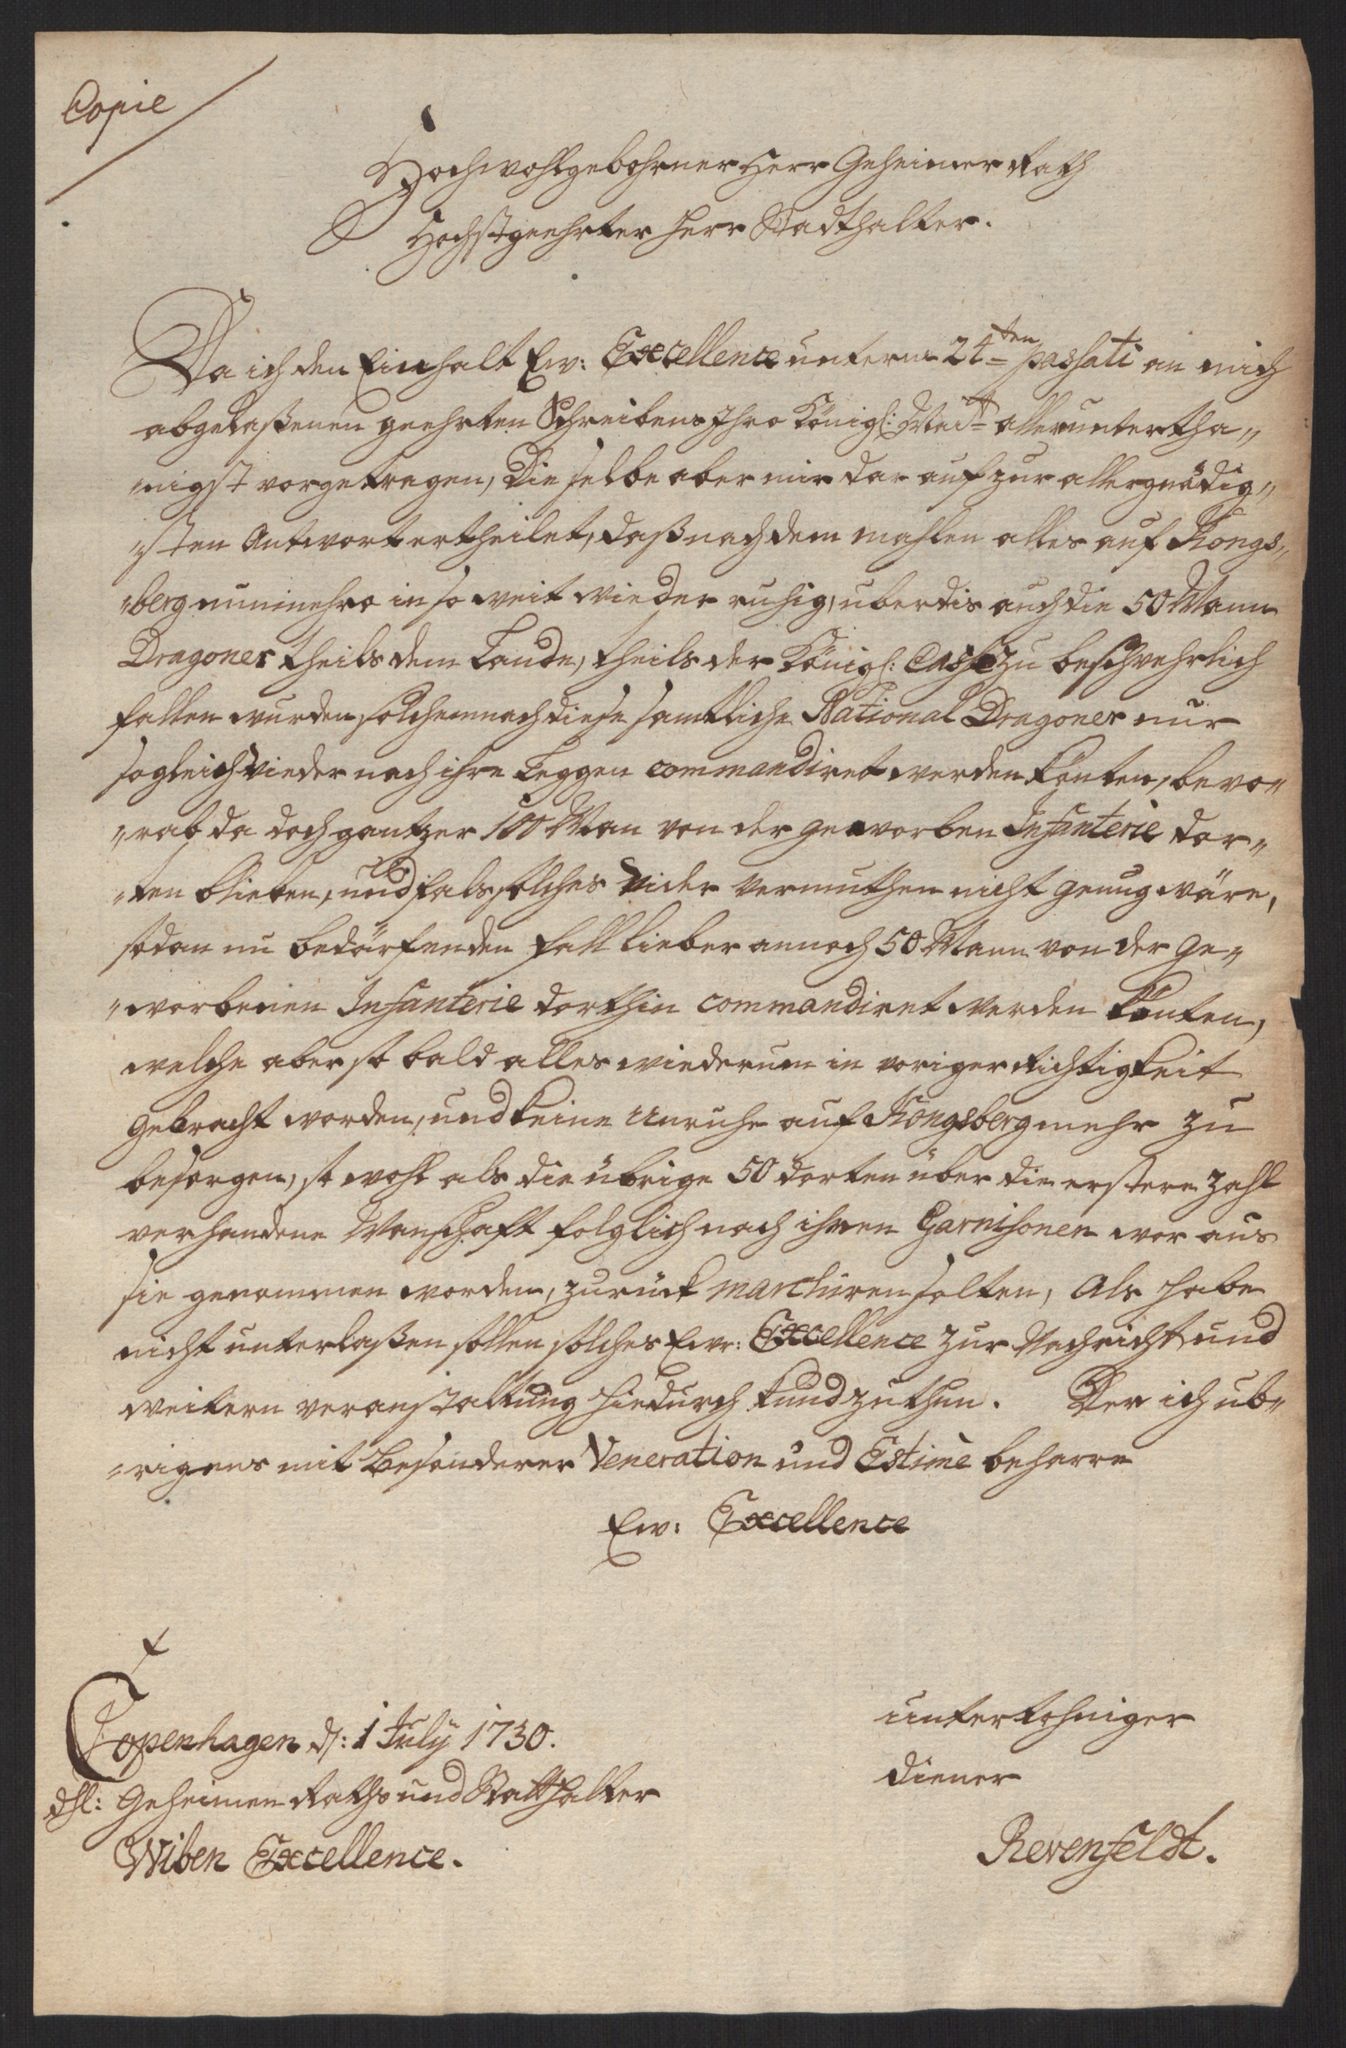 Copie
Hochwohlgebohrner Herr Geheimer Rath
Hochstgeehrter Herr Stadthalter.
Da ich den Einhalt Ew: Excellence unterm 24ten passati an mich
abgelaßenen geehrten Schreibens Ihro Königl: Meitt alleruntertha„
„nigst vorgetragen, Dieselbe aber mir darauf zur allergnädig„
„sten Antwort ertheilet, daß nachdemmahlen alles auf Kongs„
„berg nunmehro in so weit wieder ruhig, uberdis auch die 50 Mann
Dragoner theils dem Lande, theils der Königl: Casse zu beschwehrlich
fallen wurden, solchemnach diese samtliche National Dragoner nur
sogleich wieder nach ihre Leggen commandiret werden könten, bevo„
„rab da doch gantzer 100 Man von der geworben Infanterie dor„
„ten blieben, und fals solches wider vermuthen nicht genug wäre,
sodan nu bedärfenden fall lieber annoch 50 Mann von der ge„
„worbenen Infanterie dorthin commandiret werden könten,
welche aber so bald alles wiederum in voriger Richtigkeit
gebracht worden, und keine Unruhe auf Kongsberg mehr zu
besorgen, so wohl als die übrige 50 dorten über die erstere Zahl
verhandene Manschaft folglich nach ihren Garnisonen wor aus
sie genommen worden, zurück marchiren solten, Als habe
nicht unterlaßen sollen solches Ewr: Excellence zur Nachricht und
weitern veranstaltung hiedurch kund zu thun. Der ich ub„
„rigens mit besonderer Veneration und Estime beharre
Ew: Excellence
Copenhagen d: 1 July 1730.
unterthoniger
diener
Geheimen Raths und Statthalter
Wiben Excellence.
Revenfeldt.